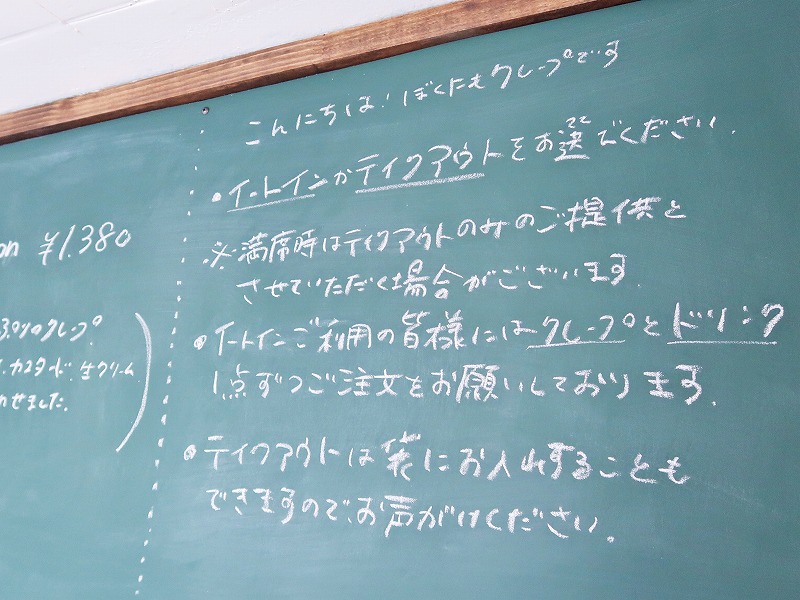 ¥1,380
クレープ
カスタード、生クリーム
わせました。
こんにちは！ぼくにもクレープです
・イートインかテイクアウトをお選びください。
※満席時はテイクアウトのみのご提供と
させていただく場合がございます。
・イートインご利用の皆様にはクレープとドリンク
1点ずつご注文をお願いしております。
・テイクアウトは袋にお入れすることも
できますので、お声がけください。